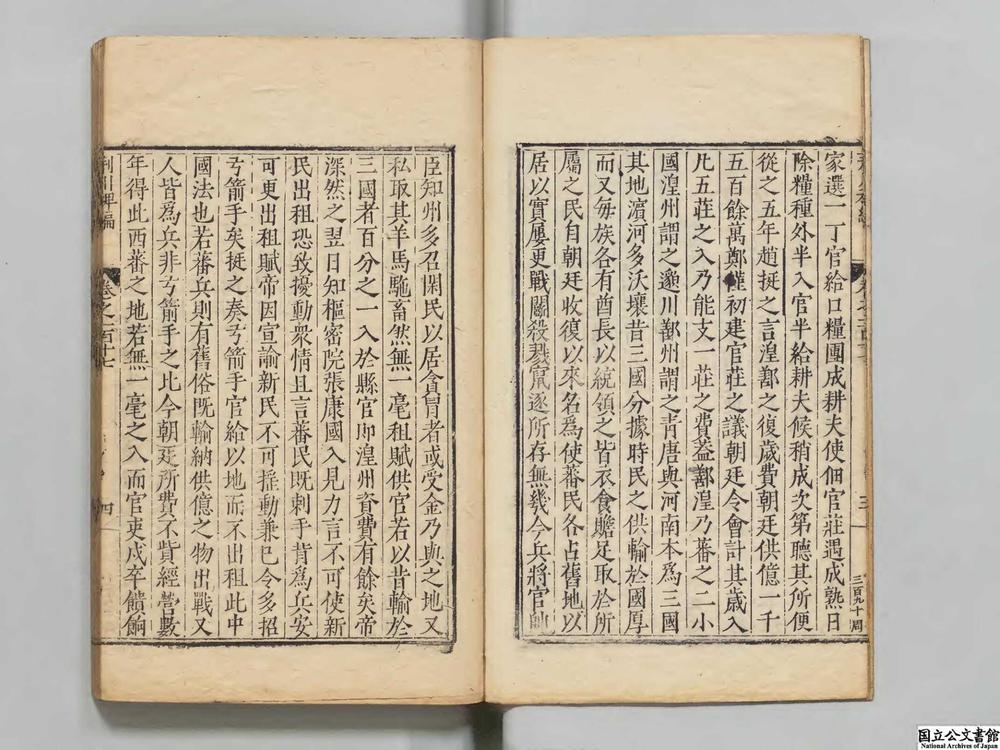 家選一丁官給口糧團成耕夫使佃官莊遇成熟日
除糧種外半入官半給耕夫候稍成次第聽其所便
從之五年趙挺之言湟鄯之復歲費朝廷供億一千
五百餘萬鄭僅初建官莊之議朝廷令會計其歲入
凡五莊之入乃能支一莊之費葢鄯湟乃蕃之二小
國湟州謂之邈川鄯州謂之青唐與河南本爲三國
其地濵河多沃壤昔三國分據時民之供輸於國厚
而又毎族各有酋長以統領之皆衣食贍足取於所
屬之民自朝廷收復以來名爲使蕃民各占舊地以
居以實屢更戰鬭殺戮竄逐所存無幾今兵將官帥
三
三百九十周
臣知州多召閑民以居貪冒者或受金乃與之地又
私取其羊馬駞畜然無一毫租賦供官若以昔輸於
三國者百分之一入於縣官卽湟州資費有餘矣帝
深然之翌日知樞密院張康國入見力言不可使新
民出租恐致擾動衆情且言蕃民既刺手背爲兵安
可更出租賦帝因宣諭新民不可摇動兼已令多招
弓箭手矣挺之奏弓箭手官給以地而不出租此中
國法也若蕃兵則有舊俗既輸納供億之物出戰又
人皆爲兵非弓箭手之比今朝廷所費不貲經營數
年得此西蕃之地若無一毫之入而官吏戍卒饋餉
荆川稗編
卷之一百十七
四
国立公文書館
National Archives of Japan